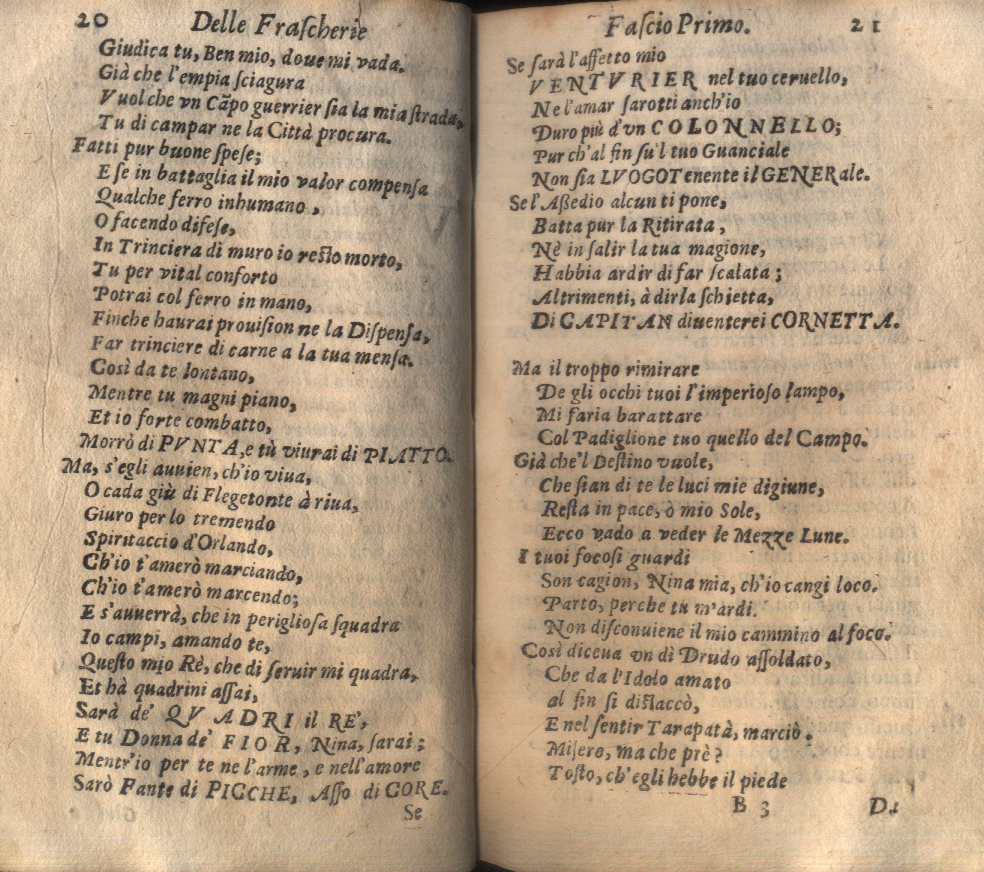 20 Delle Fraſcherie
Giudica tu, Ben mio, doue mi vada.
Già che l'empia ſciagura
Vuol che vn Cãpo guerrier ſia la mia ſtrada,
Tu di campar ne la Città procura.
Fatti pur buone ſpeſe;
E ſe in battaglia il mio valor compenſa
Qualche ferro inhumano,
O facendo difeſe,
In Trinciera di muro io reſto morto,
Tu per vital conforto
Potrai col ferro in mano,
Finche haurai prouiſion ne la Diſpenſa,
Far trinciere di carne a la tua menſa.
Così da te lontano,
Mentre tu magni piano,
Et io forte combatto,
Morrò di PVNTA, e tù viurai di PIATTO.
Ma, s'egli auuien, ch'io viua,
O cada giù di Flegetonte à riua,
Giuro per lo tremendo
Spiritaccio d'Orlando,
Ch'io t'amerò marciando,
Ch'io t'amerò marcendo;
E s'auuerrà, che in periglioſa ſquadra
Io campi, amando te,
Queſto mio Rè, che di ſeruir mi quadra,
Et hà quadrini aſſai,
Sarà de' QVADRI il RE',
E tu Donna de' FIOR, Nina, ſarai;
Mentr'io per te ne l'arme, e nell'amore
Sarò Fante di PICCHE, Aſſo di CORE.
Se
Faſcio Primo. 21
Se ſarà l'affetto mio
VENTVRIER nel tuo ceruello,
Ne l'amar ſarotti anch'io
Duro più d'vn COLONNELLO;
Pur ch'al fin ſu'l tuo Guanciale
Non ſia LVOGOTenente il GENERale.
Se l'Aßedio alcun ti pone,
Batta pur la Ritirata,
Nè in ſalir la tua magione,
Habbia ardir di far ſcalata;
Altrimenti, à dirla ſchietta,
Di CAPITAN diuenterei CORNETTA.
Ma il troppo rimirare
De gli occhi tuoi l'imperioſo lampo,
Mi faria barattare
Col Padiglione tuo quello del Campo.
Già che'l Deſtino vuole,
Che ſian di te le luci mie digiune,
Reſta in pace, ò mio Sole,
Ecco vado a veder le Mezze Lune.
I tuoi focoſi guardi
Son cagion, Nina mia, ch'io cangi loco.
Parto, perche tu m'ardi.
Non diſconuiene il mio cammino al foco.
Così diceua vn dì Drudo aſſoldato,
Che da l'Idolo amato
al fin ſi diſtaccò,
E nel ſentir Tarapatà, marciò.
Miſero, ma che prè?
Toſto, ch'egli hebbe il piede
B 3 Da